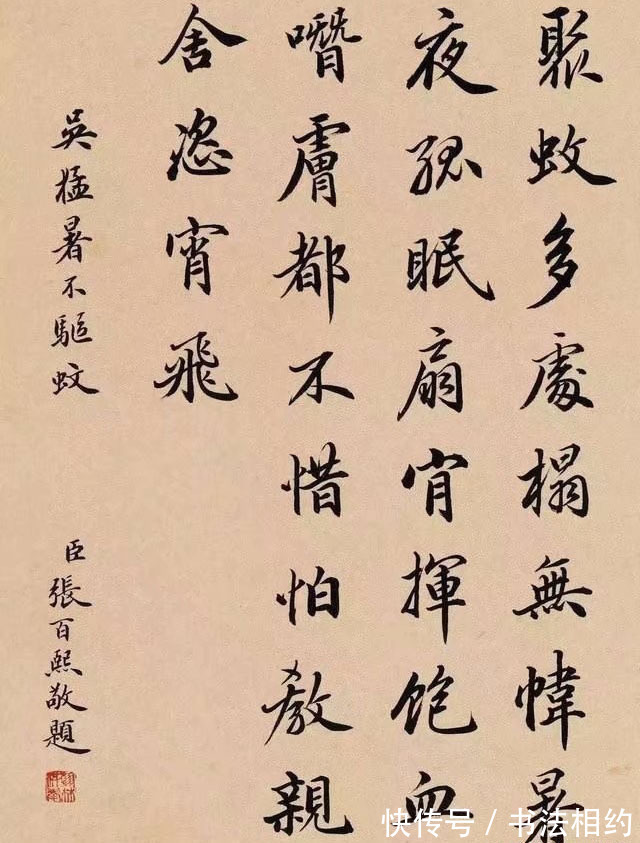 聚蚊多處榻無幃暑
夜孤眠扇肯揮飽血
噆膚都不惜怕教親
舍恣宵飛
吳猛暑不驅蚊
臣張百熙敬題
快传号 / 书法相约